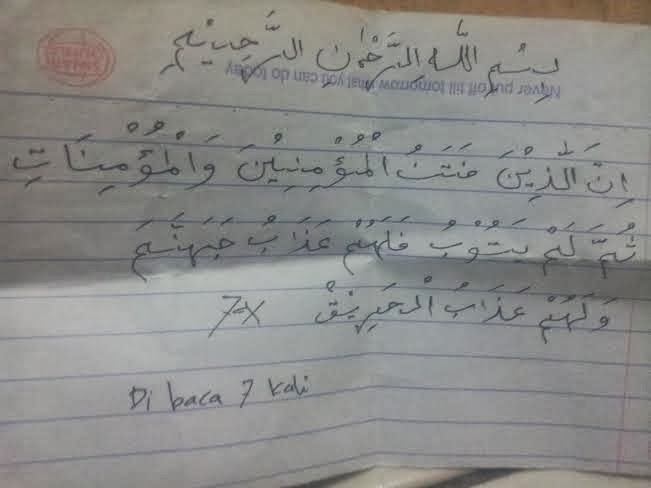 بِسْمِ اللَّهِ الرَّحْمٰنِ الرَّحِيْمِ
Never put off till tomorrow what you can do today
اِنَّ الَّذِيْنَ فَتَنُ الْمُؤْمِنِيْنَ وَالْمُؤْمِنَاتِ
ثُمَّ لَمْ يَتُوْبُ فَلَهُمْ عَذَابُ جَهَنَّمَ
وَلَهُمْ عَذَابُ الْحَرِيْقْ 7x
Di baca 7 kali